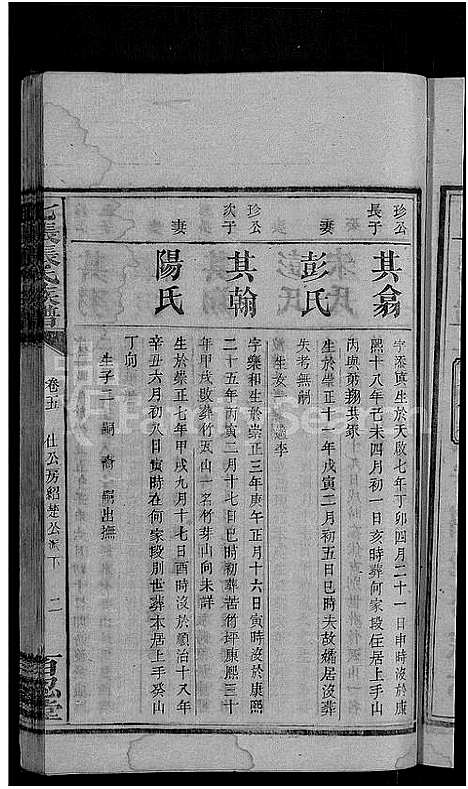 珍公長子
其翕
字添真生於天啟七年丁卯四月二十一日申時沒於康
熙十八年己未四月初一日亥時葬何家段住居上手山
丙與弟翔共冢
妻
彭氏
生於崇正十一年戊寅二月初五日巳時夫故孀居沒葬
失考無嗣
生女 適李
珍公次子
其翰
字樂和生於崇正三年庚午正月十六日寅時沒於康熙
二十五年丙寅二月十七日巳時初葬苦竹坪康熙三十
年甲戌改葬竹瓦山一名竹芽山向未詳
妻
陽氏
生於崇正七年甲戌九月十七日酉時沒於順治十八年
辛丑六月初八日寅時在何家段別世葬本居上手癸山
丁向
生子二 嗣 嗣出撫
張氏族譜
卷五
仕公房紹楚公派下
二
百忍堂